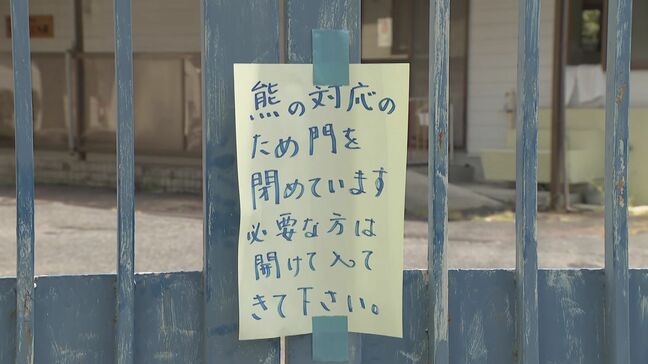 熊の対応の
ため門を
閉めています
必要な方は
開けて入て
きて下さい。